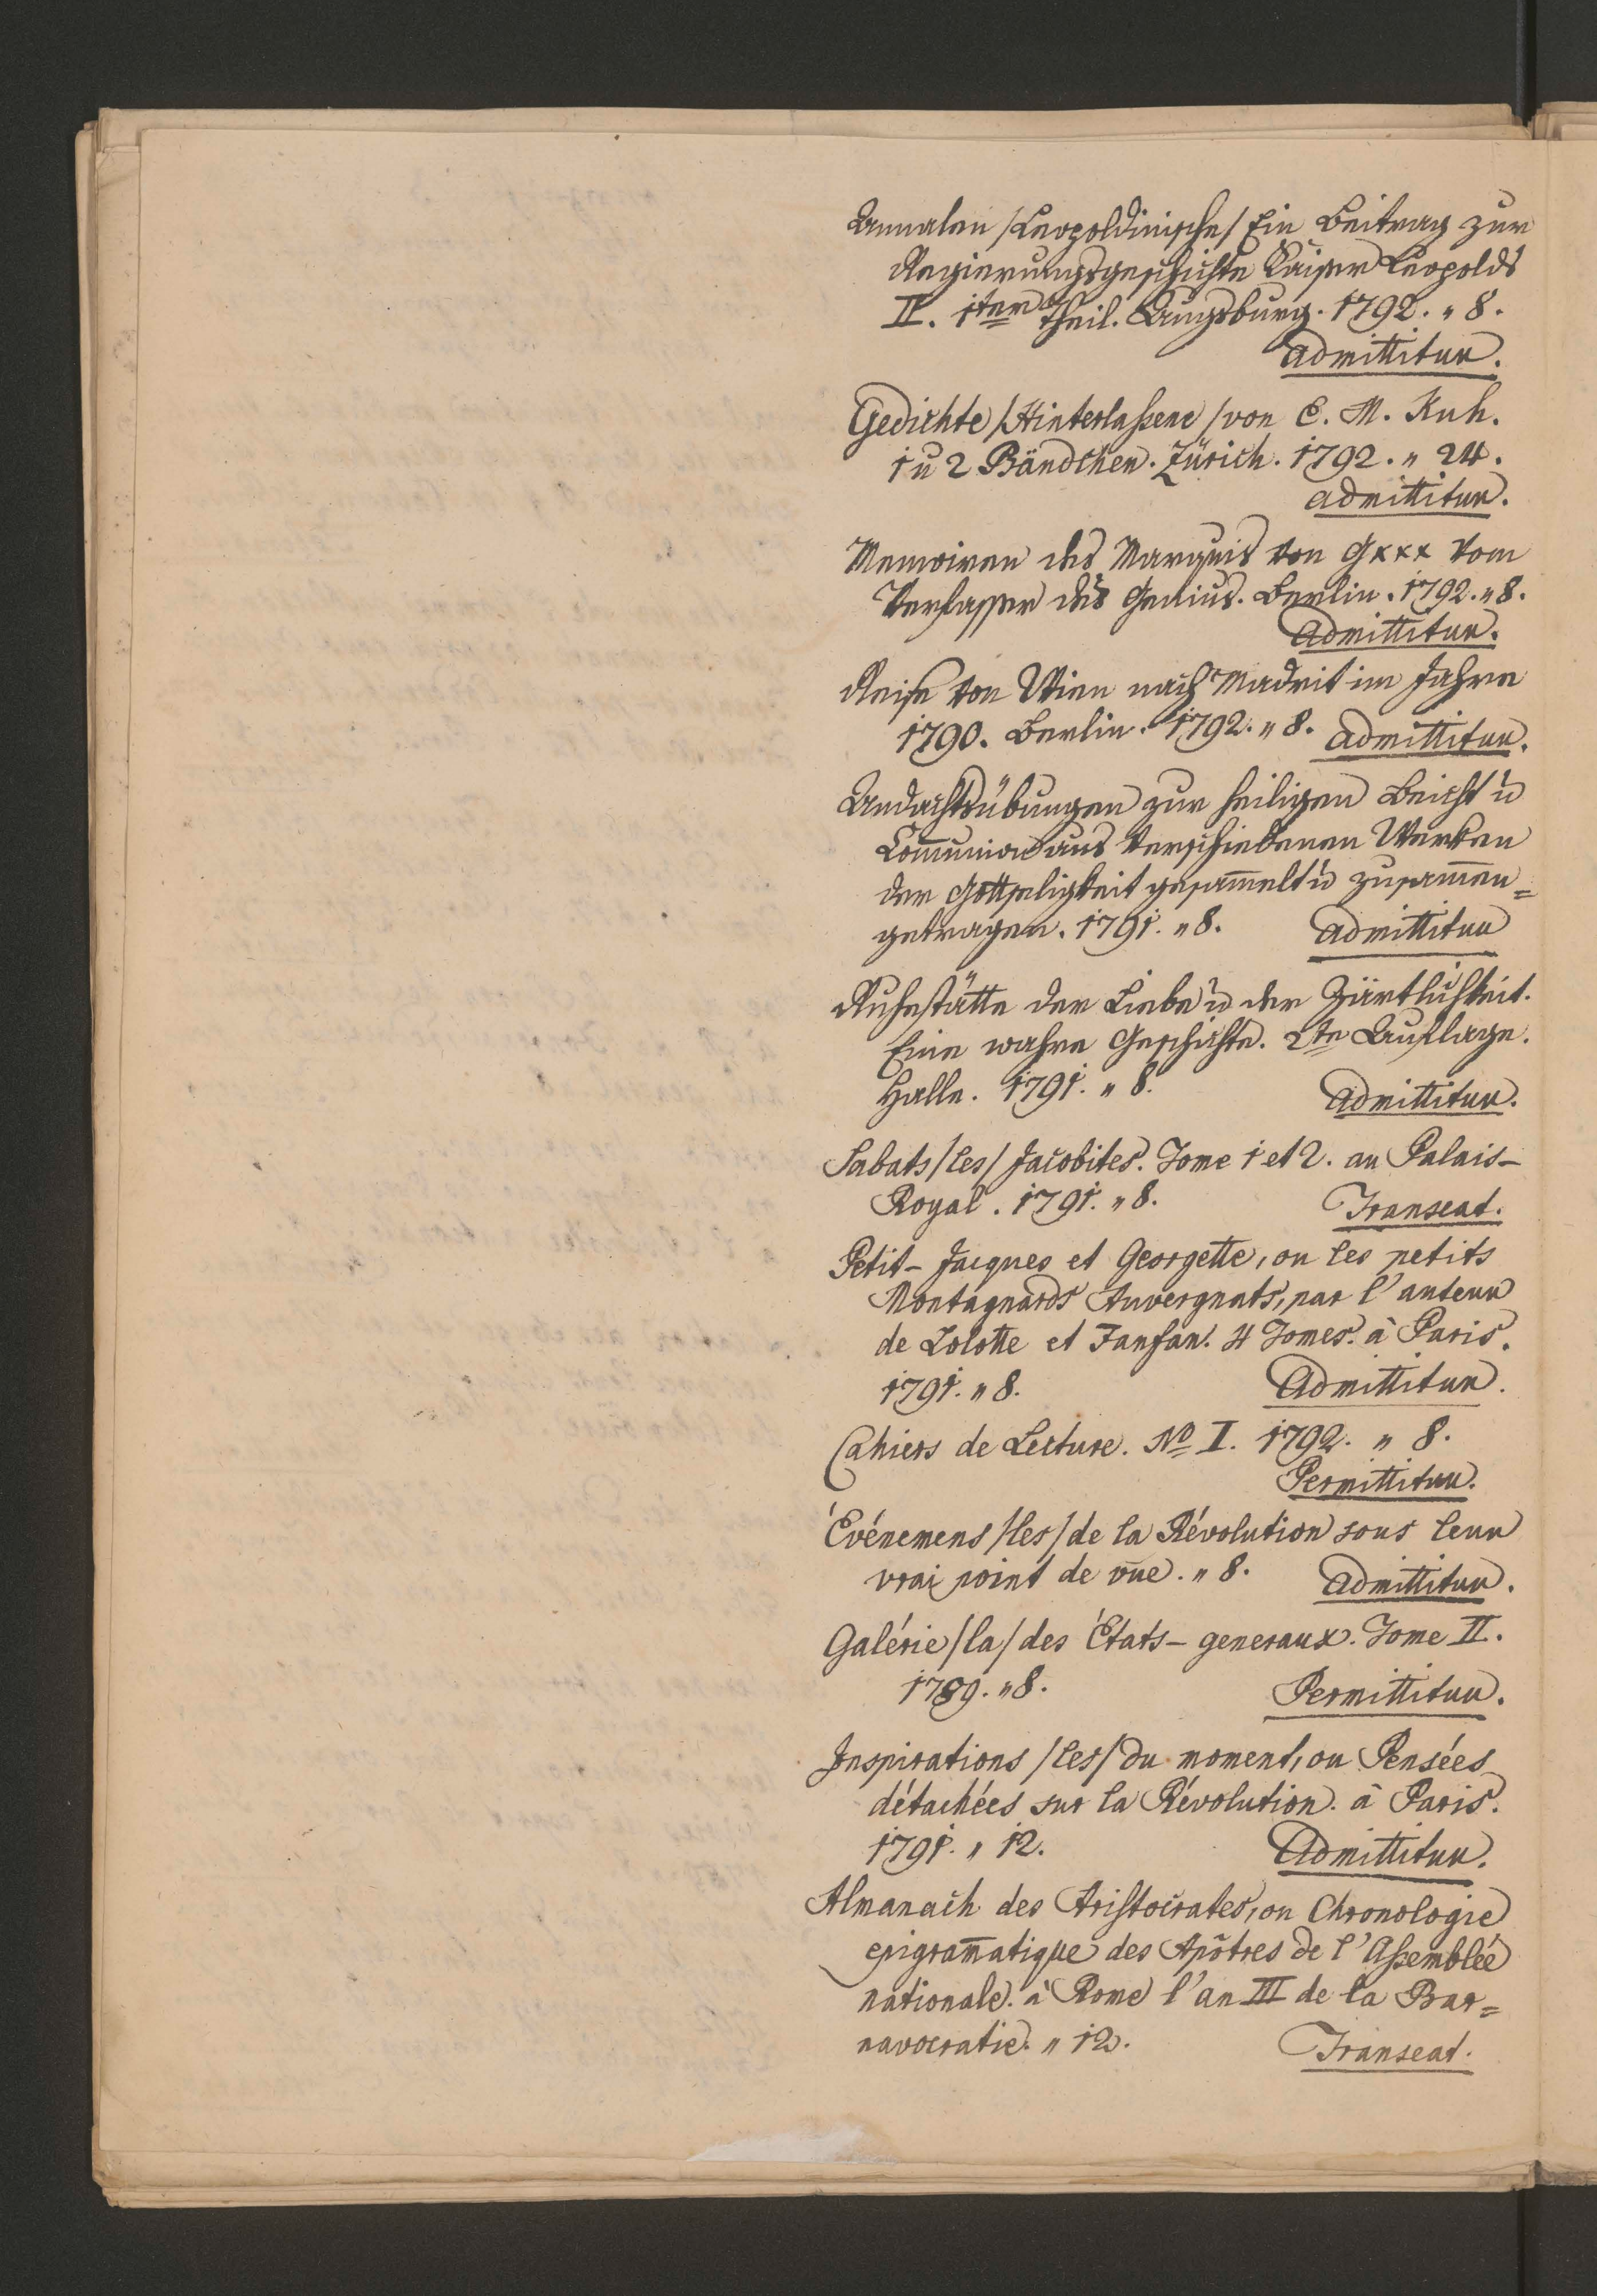 Annalen /Leopoldinische/ Ein Beitrag zur
Regierungsgeschichte Kaiser Leopolds
II. 1ter Theil. Augsburg. 1792. " 8.
admittitur.
Gedichte /Hinterlaßene/ von E. M. Kuh.
1 u 2 Bändchen. Zürich. 1792. " 24.
admittitur.
Memoiren des Marquis von G××× vom
Verfasser des Genius. Berlin. 1792. " 8.
Admittitur.
Reise von Wien nach Madrit im Jahre
1790. Berlin. 1792. " 8. admittitur.
Andachtsübungen zur heiligen Beicht u
Com̅union aus verschiedenen Werken
der Gottseligkeit gesam̅elt u zusam̅en=
getragen. 1791. " 8. admittitur
Ruhestätte der Liebe u der Zärtlichkeit.
Eine wahre Geschichte. 2te Auflage.
Halle. 1791. " 8. admittitur.
Sabats /les/ Jacobites. Tome 1 et 2. au Palais-
Royal. 1791. " 8. Transeat.
Petit-Jacques et Georgette, ou les petits
Montagnards Auvergnats, par l'auteur
de Lolotte et Fanfan. 4 Tomes. à Paris.
1791. " 8. Admittitur.
Cahiers de Lecture. No I. 1792. " 8.
Permittitur.
Événemens /les/ de la Révolution sous leur
vrai point de vue. " 8. admittitur.
Galérie /la/ des États-generaux. Tome II.
1789. " 8. Permittitur.
Inspirations /les/ du moment, ou Pensées
détachées sur la Révolution. à Paris.
1791. " 12. Admittitur.
Almanach des Aristocrates, ou Chronologie
epigram̅atique des Apôtres de l'Aßemblée
nationale. à Rome l'an III de la Bar=
navocratie. " 12. Transeat.